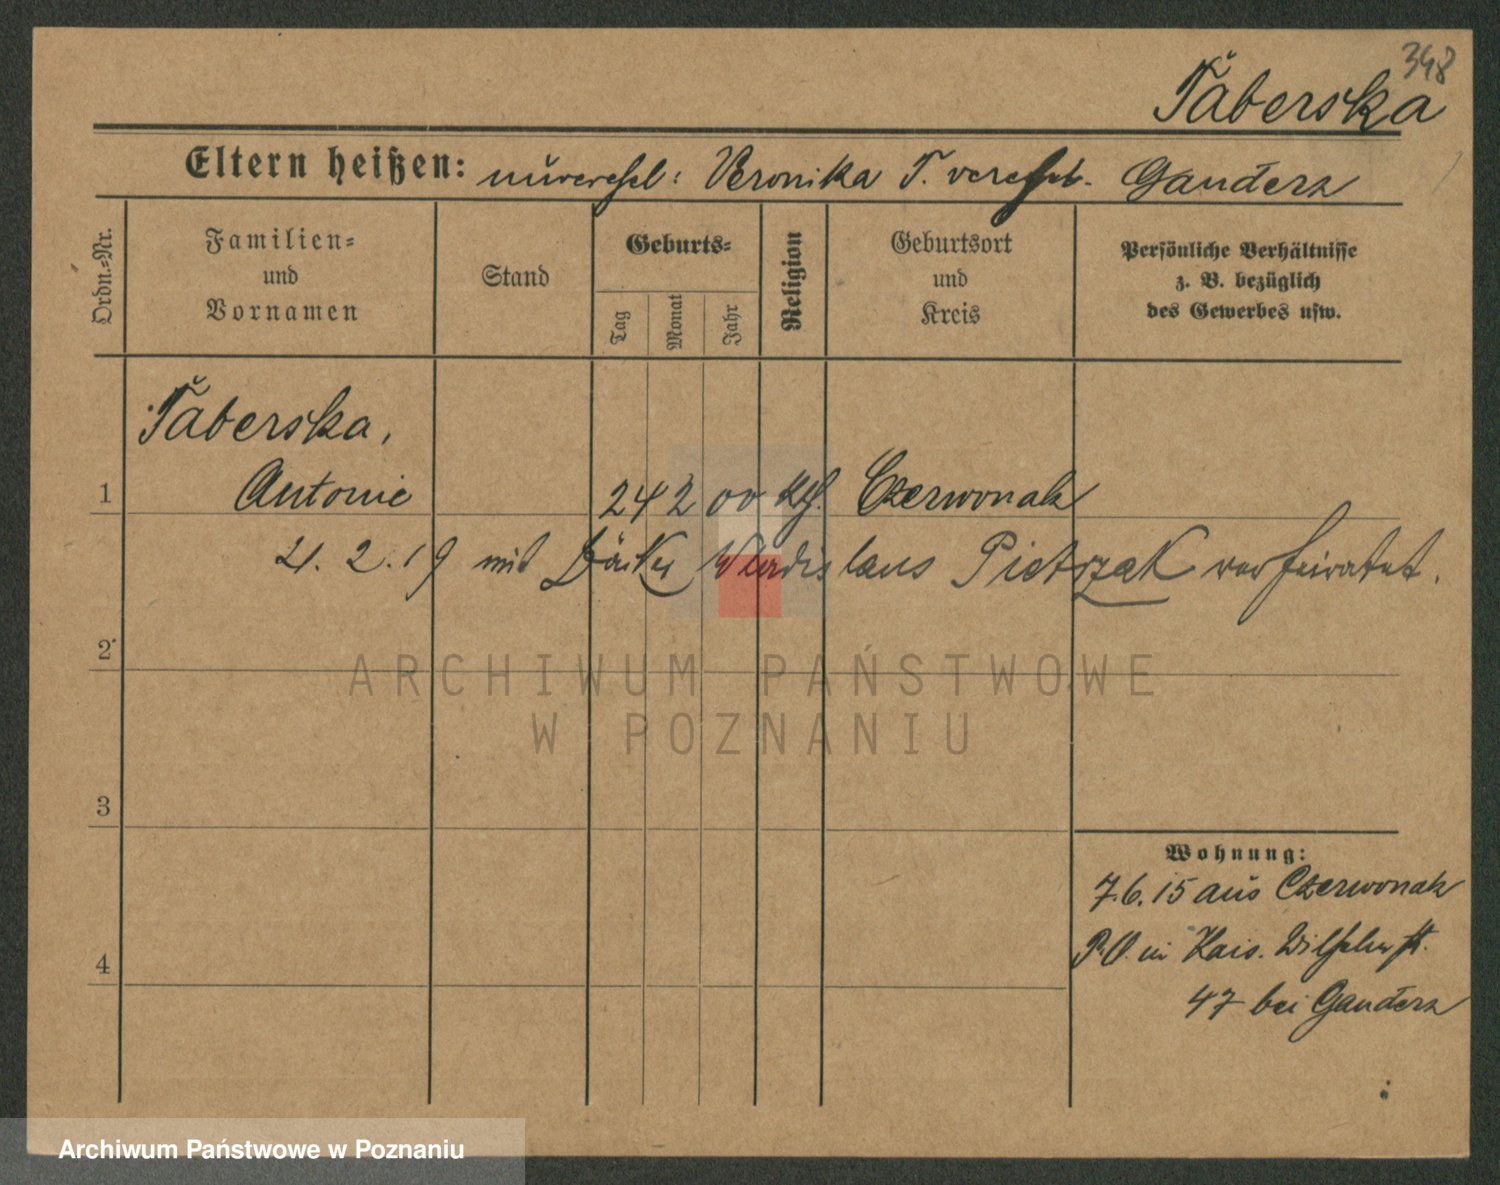 348
Taberska
Eltern heißen: unverehel: Veronika T. verehel. Gandera
Ordn.-Nr.
Familien= und Vornamen
Stand
Geburts=
Tag
Monat
Jahr
Religion
Geburtsort und Kreis
Persönliche Verhältnisse z. B. bezüglich des Gewerbes usw.
Taberska,
1 Antonie 24 2 00 kth. Czerwonak
21. 2. 19 mit Bäcker Wladislaus Pietrzak verheiratet.
2
3
4
Wohnung:
7.6.15 aus Czerwonak
P.O. in Kais. Wilhelmstr.
47 bei Gandera
ARCHIWUM PAŃSTWOWE
W POZNANIU
Archiwum Państwowe w Poznaniu